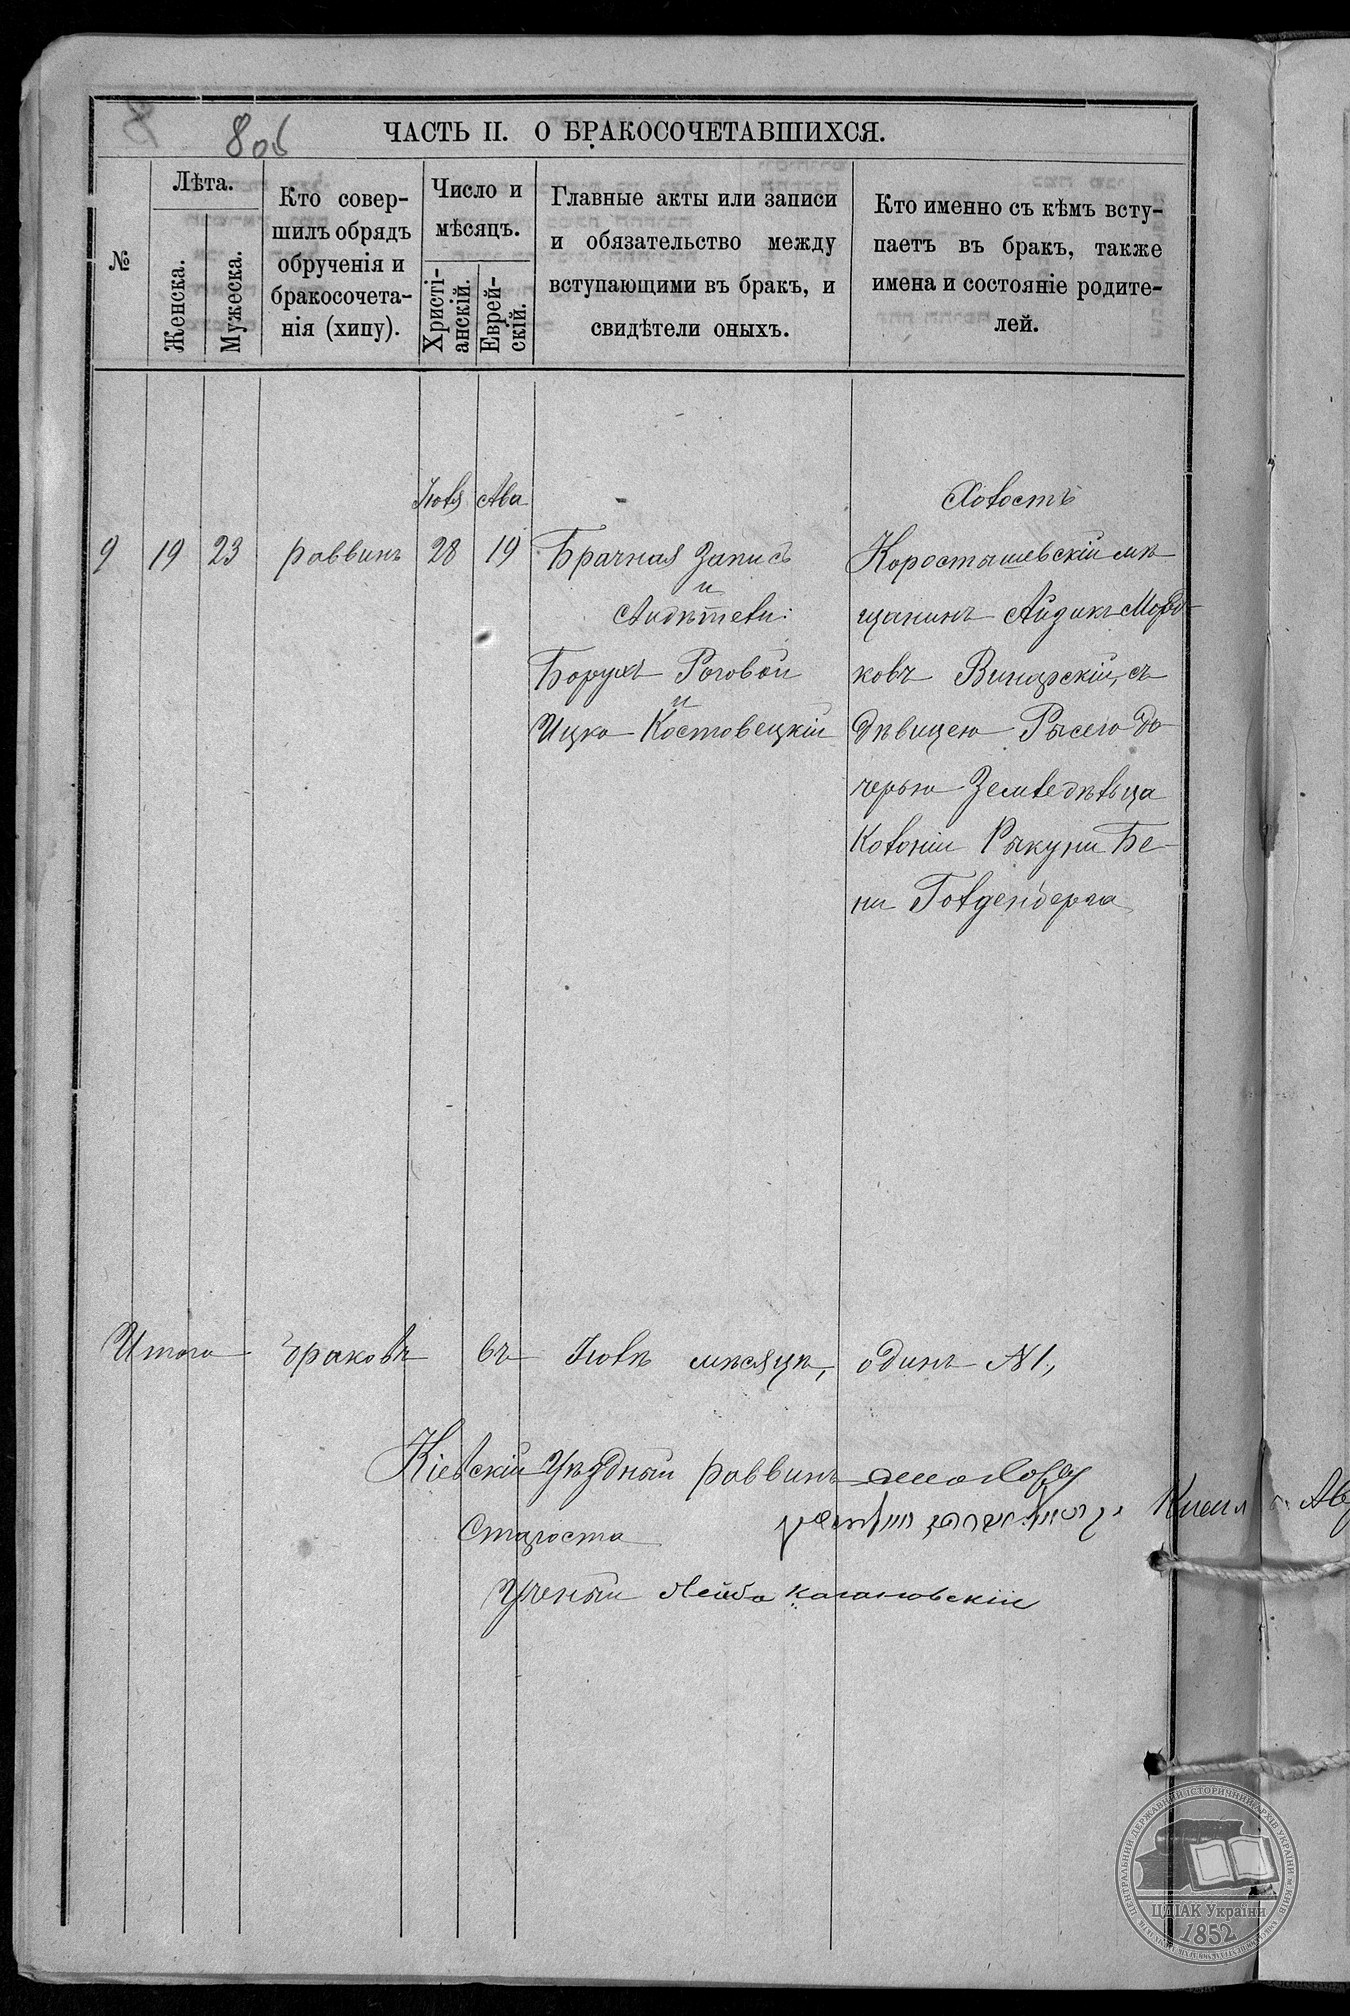 806
ЧАСТЬ II. О БРАКОСОЧЕТАВШИХСЯ.
№
Лѣта.
Женска.
Мужеска.
Кто совер-
шилъ обрядъ
обрученія и
бракосочета-
нія (хипу).
Число и
мѣсяцъ.
Христі-
анскій.
Еврей-
скій.
Главные акты или записи
и обязательство между
вступающими въ бракъ, и
свидѣтели оныхъ.
Кто именно съ кѣмъ всту-
паетъ въ бракъ, также
имена и состояніе родите-
лей.
Іюля
Ава
9
19
23
раввинъ
28
19
Брачная Запись
и
свидѣтели:
Борухъ Роговой
и
Ицко Костовецкій
Холостъ
Коростышевскій мѣ-
щанинъ Айзикъ Морд-
ковъ Винарскій, съ
дѣвицею Рысею до-
черью Земледѣльца
Колоніи Рыкуни Бе-
ни Голденберга
Итого браковъ въ Іюлѣ мѣсяцѣ, одинъ №1,
Кіевскій Уѣздный раввинъ
Староста
Ученый Лейба Кагановскій
ЦЕНТРАЛЬНИЙ ДЕРЖАВНИЙ ІСТОРИЧНИЙ АРХІВ УКРАЇНИ м. КИЇВ
ЦДІАК України
1852